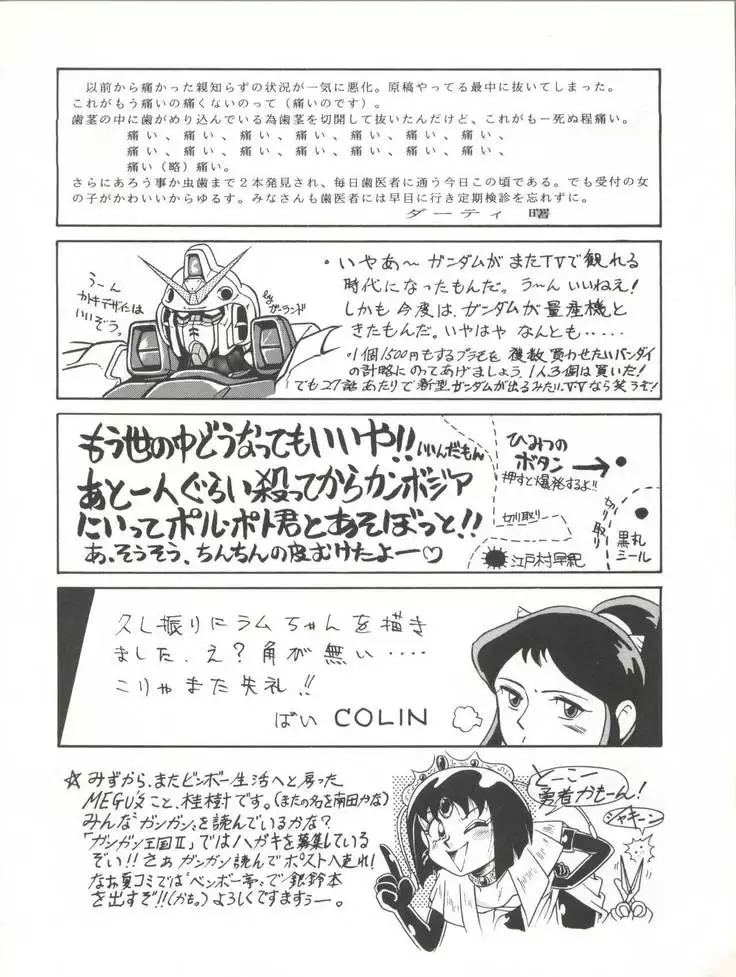 以前から痛かった親知らずの状況が一気に悪化。原稿やってる最中に抜いてしまった。
これがもう痛いの痛くないのって（痛いのです）。
歯茎の中に歯がめり込んでいる為歯茎を切開して抜いたんだけど、これがも一死ぬ程痛い。
痛い、痛い、痛い、痛い、痛い、痛い、痛い、
痛い、痛い、痛い、痛い、痛い、痛い、痛い、
痛い（略）痛い。
さらにあろう事か虫歯まで２本発見され、毎日歯医者に通う今日この頃である。でも受付の女
の子がかわいいからゆるす。みなさんも歯医者には早目に行き定期検診を忘れずに。
ダーティ 曙
うーん
カトキデザインは
いいぞう。
ガーランド
・いやあ〜ガンダムがまたTVで観れる
時代になったもんだ。う〜んいいねえ！
しかも今度は、ガンダムが量産機と
きたもんだ。いやはやなんとも‥‥‥
・1個1500円もするプラモを複数買わせたいバンダイ
の計略にのってあげましょう。1人3個は買いだ！
でも27話あたりで新型ガンダムが出るみたい
なら笑うぞ！
もう世の中どうなってもいいや!!いいんだもん
あと一人ぐらい殺ってからカンボジア
にいってポル・ポト君とあそぼっと!!
あ、そうそう、ちんちんの皮むけたよー♡
ひみつの
ボタン→
押すと爆発するよ!!
切り取り
切り取り
黒丸
ミール
江戸村早紀
久し振りにラムちゃんを描き
ました.え？角が無い‥‥
こりゃまた失礼!!
ばい COLIN
☆みずから、またビンボー生活へと戻った
MEGUくこと、桂樹です。(またの名を南田かな)
みんな〝ガンガン〟を読んでいるかな？
「ガンガン王国Ⅱ」ではハガキを募集している
ぞい!!さあガンガン読んでポストへ走れ！
なお夏コミでは〝ベンボー亭〟で銀鈴本
を出すぞ!!(かも。)よろしくですますぅー。
とーこー
勇者かもーん！
シャキーン